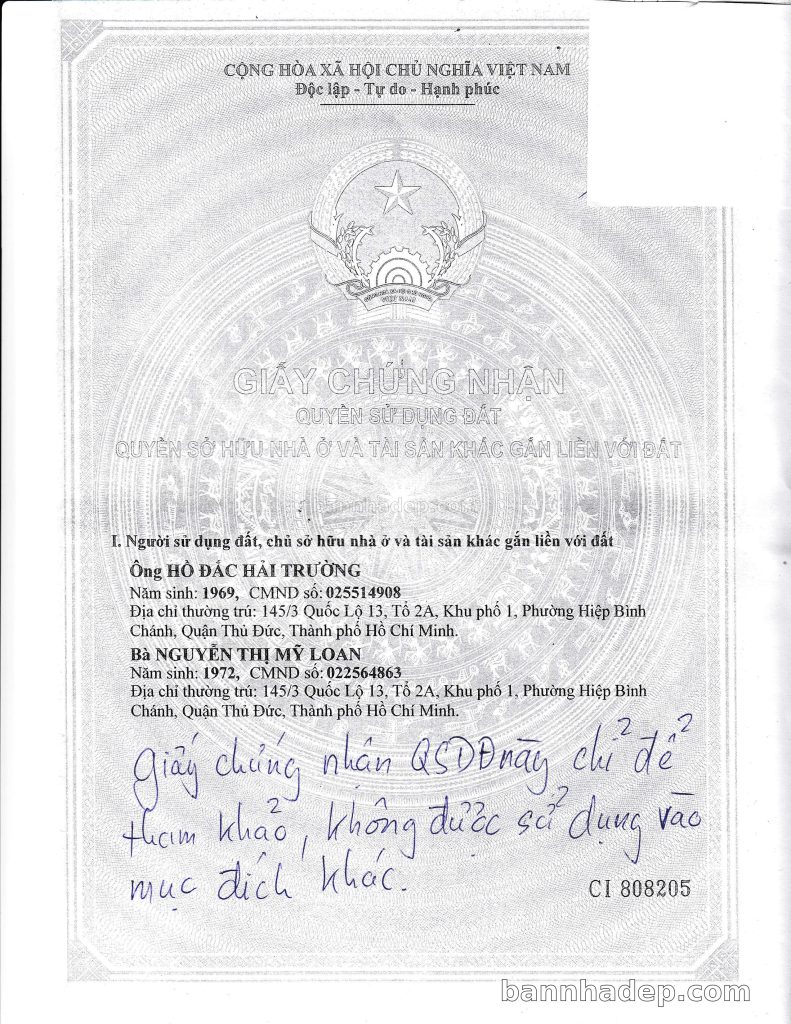 CỘNG HÒA XÃ HỘI CHỦ NGHĨA VIỆT NAM
Độc lập - Tự do - Hạnh phúc
VIỆT NAM
GIẤY CHỨNG NHẬN
QUYỀN SỬ DỤNG ĐẤT
QUYỀN SỞ HỮU NHÀ Ở VÀ TÀI SẢN KHÁC GẮN LIỀN VỚI ĐẤT
bannhadep.com
I. Người sử dụng đất, chủ sở hữu nhà ở và tài sản khác gắn liền với đất
Ông HỒ ĐẮC HẢI TRƯỜNG
Năm sinh: 1969, CMND số: 025514908
Địa chỉ thường trú: 145/3 Quốc Lộ 13, Tổ 2A, Khu phố 1, Phường Hiệp Bình
Chánh, Quận Thủ Đức, Thành phố Hồ Chí Minh.
Bà NGUYỄN THỊ MỸ LOAN
Năm sinh: 1972, CMND số: 022564863
Địa chỉ thường trú: 145/3 Quốc Lộ 13, Tổ 2A, Khu phố 1, Phường Hiệp Bình
Chánh, Quận Thủ Đức, Thành phố Hồ Chí Minh.
Giấy chứng nhận QSDĐ này chỉ để
tham khảo, không được sử dụng vào
mục đích khác.
CI 808205
bannhadep.com